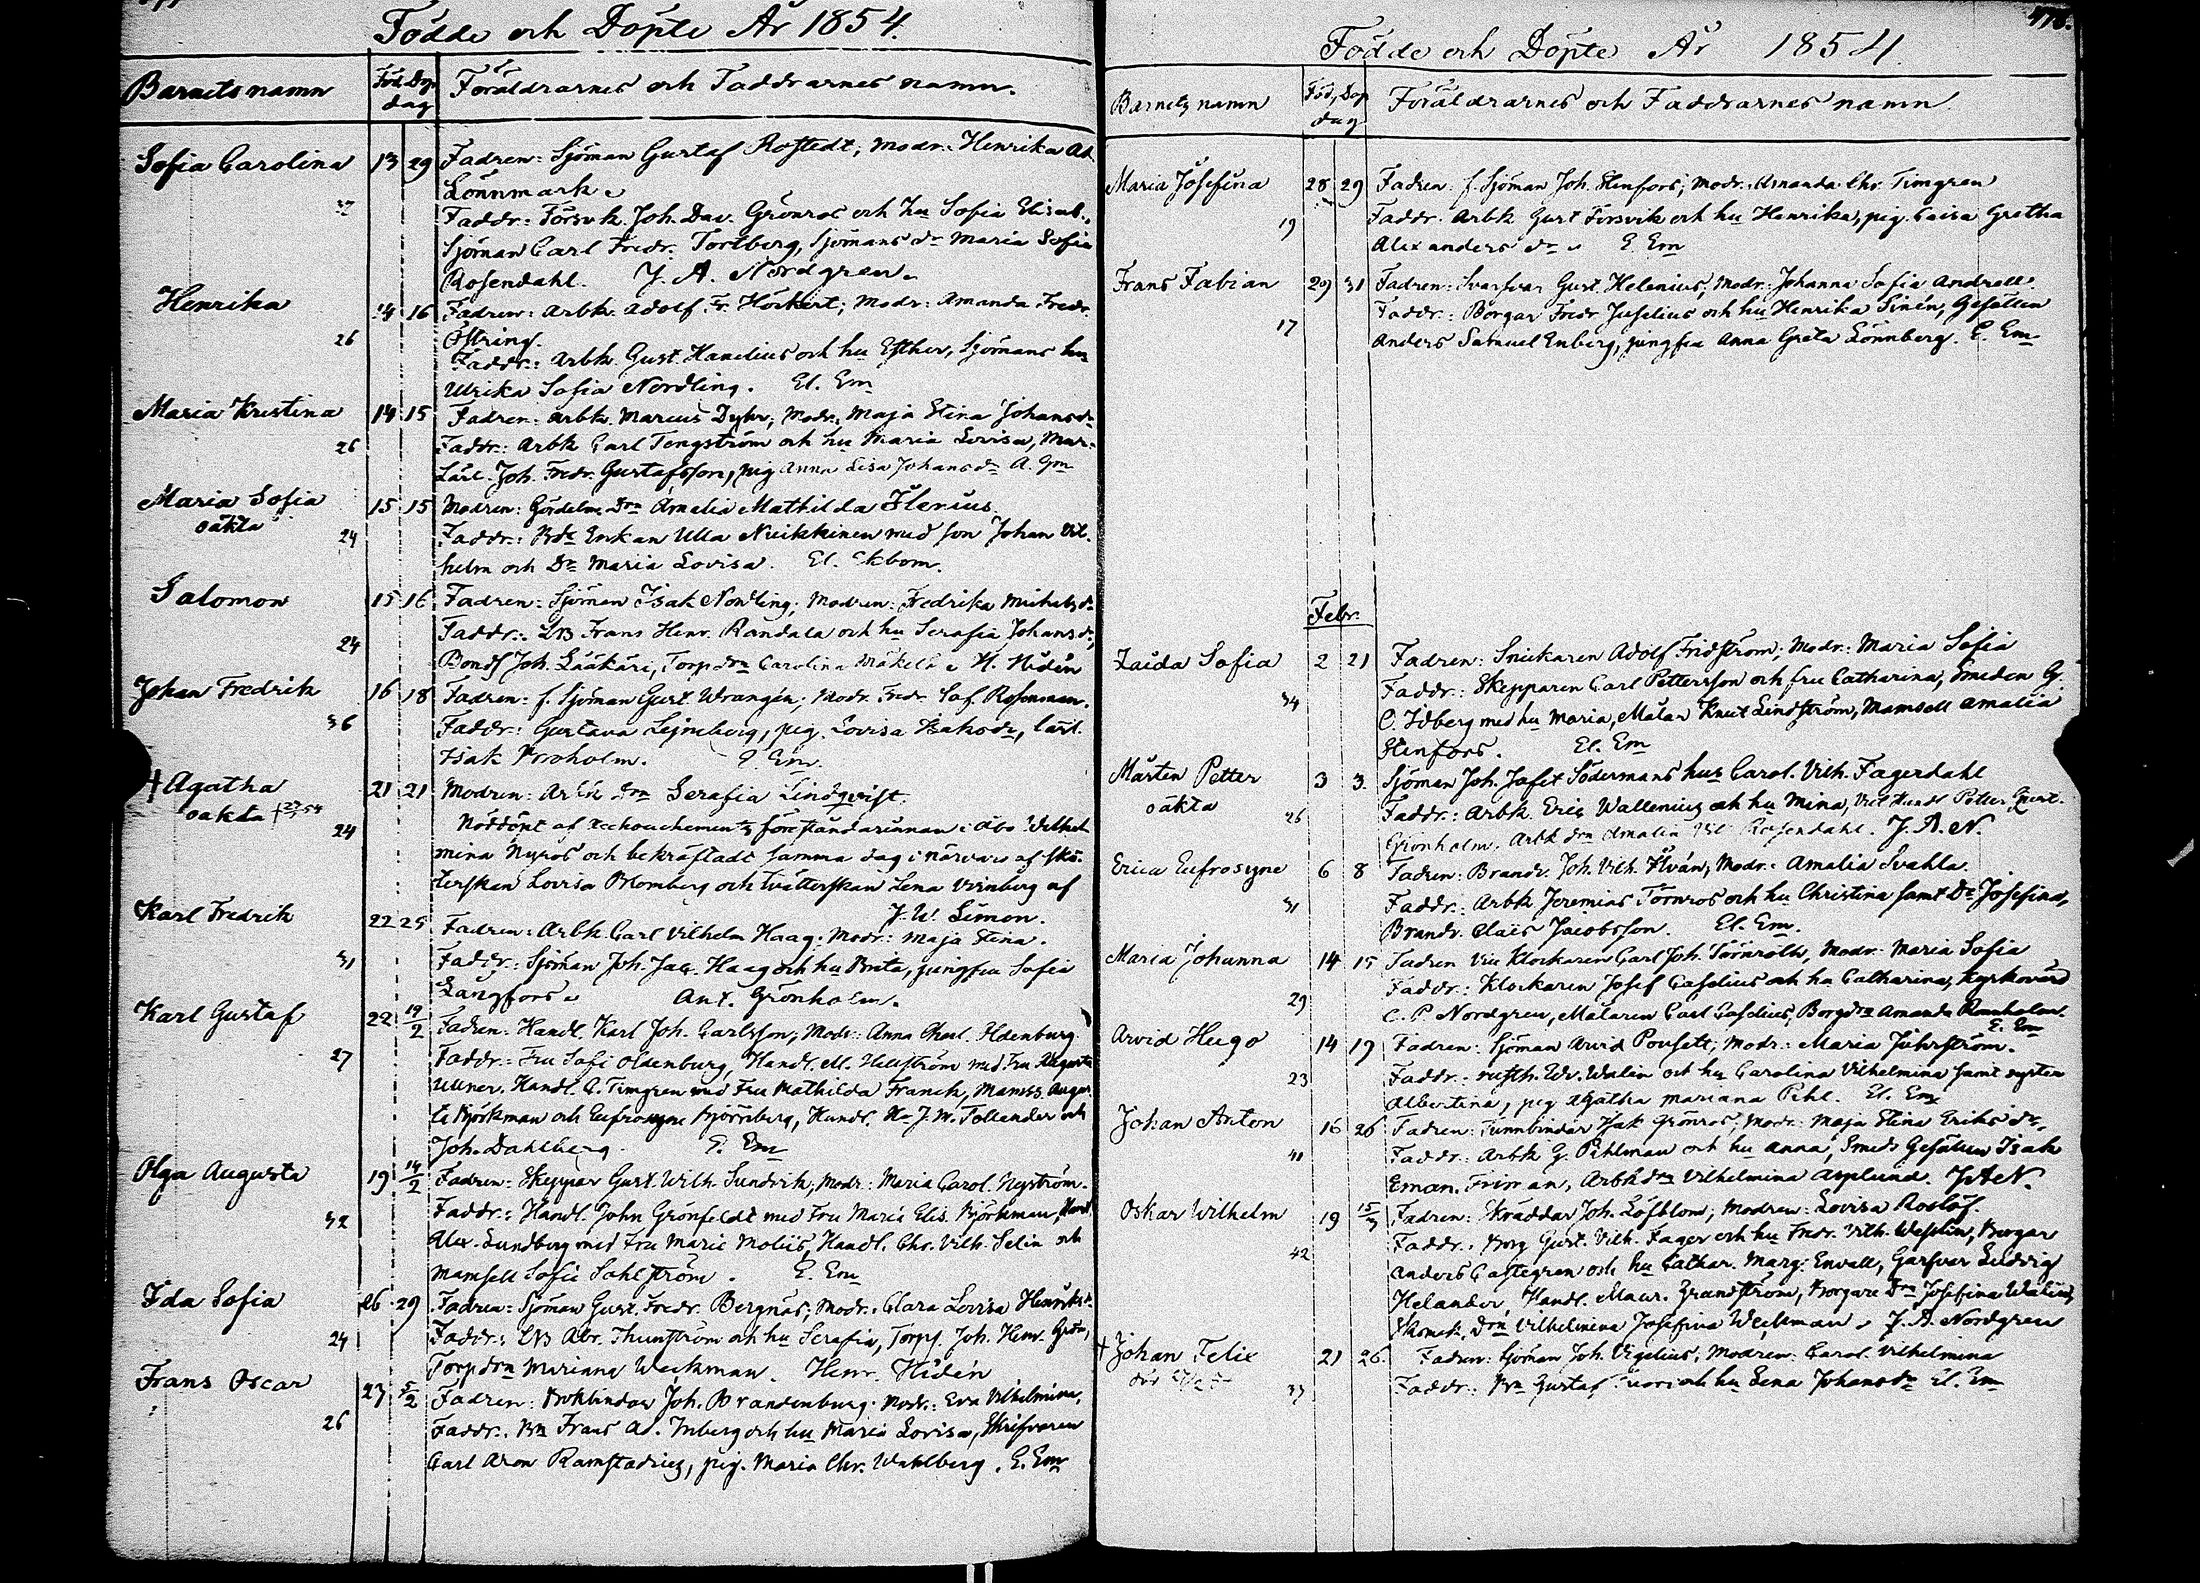 Födde och Döpte År 1854.
Barnets namn Föd. Dop dag Föräldrarnes och Faddrarnes namn.
Sofia Carolina 13 29 Fadren: Sjöman Gustaf Rostedt; Modr: Henrika Ad.
Lönnmark
37 Faddr: Försvk. Joh. Dav. Grönros och hu Sofia Elisab.,
Sjöman Carl Fredr. Tortberg, Sjömans dr Maria Sofia
Rosendahl. J. A. Nordgren.
Henrika 14 16 Fadren: Arbk. Adolf Fr. Höckert; Modr: Amanda Fredr.
26 Östring.
Faddr: Arbk. Gust. Hanelius och hu Esther, Sjömans hu
Ulrika Sofia Nordling. El. Em
Maria Kristina 14 15 Fadren: Arbk. Marcus Dyhr; Modr: Maja Stina Johansdr
26 Faddr: Arbk Carl Tengström och hu Maria Lovisa, Mur-
Lärl. Joh. Fredr. Gustafsson, pig Anna Lisa Johansdr A. Gm
Maria Sofia 15 15 Modren: Gördelm. Drn Amalia Mathilda Flerius.
oäkta
24 Faddr: Bde Enkan Ulla Nuikkinen med son Johan Vil-
helm och Dr Maria Lovisa. El. Ekbom.
Salomon 15 16 Fadren: Sjöman Isak Nordling; Modren: Fredrika Michelsdr
24 Faddr: LB Frans Henr. Randala och hu Serafia Johansdr,
Bonds Joh. Lääkäri, Torp drn Carolina Mäkelä H. Hidén
Johan Fredrik 16 18 Fadren: f. Sjöman Gust. Wrangén; Modr. Fredr. Sof. Rosenman.
36 Faddr: Gustava Lejneberg, pig. Lovisa Isaksdr, lärl.
Isak Kroholm. E. Em.
† Agatha 21 21 Modren: Arbk drn Serafia Lindqvist.
oäkta
24 Nöddöpt af Accouchements föreståndarinnan i Åbo Wilhel-
mina Nyros och bekräftadt samma dag i närvaro af skö-
terskan Lovisa Blomberg och tvätterskan Lena Virnberg af
J. W. Limon.
Karl Fredrik 22 25 Fadren: Arbk Carl Vilhelm Haag; Modr: Maja Stina.
31 Faddr: Sjöman Joh. Jac. Haag och hu Brita, jungfru Sofia
Långfors Ant. Grönholm.
Karl Gustaf 22 19/2 Fadren: Handl. Karl Joh. Carlsson; Modr: Anna Charl. Oldenburg
27 Faddr: Fru Sofi Oldenburg, Handl. M. Hellström med Fru Augusta
Ullner, Handl. C. Timgren med Fru Mathilda Franck, Mamss. Augus-
te Björkman och Eufrosyne Björnberg, Handl. Hr J. W. Tollander och
Joh. Dahlberg. E. Em
Olga Augusta 19 14/2 Fadren: Skeppar Gust. Wilh. Sundvik; Modr: Maria Carol. Nyström.
32 Faddr: Handl. John Grönfeldt med Fru Maria Elis. Björkman, Handl
Alex. Lundberg med Fru Marie Moliis, Handl. Chr. Vilh. Selin och
Mamsell Sofie Sahlström. E. Em
Ida Sofia 26 29 Fadren: Sjöman Gust. Fredr. Bergnäs; Modr: Clara Lovisa Henriksdr
24 Faddr: LB Abr. Thunström och hu Serafia, Torpf. Joh. Henr. Grön,
Torpdrn Mariana Weckman. Henr. Hidén
Frans Oscar 27 5/2 Fadren: Bokbindar Joh. Brandenburg. Modr: Eva Vilhelmina.
26 Faddr: Bn Frans Ad. Inberg och hu Maria Lovisa, Skrifvaren
Carl Aron Ramstadius, pig. Maria Chr. Wahlberg. E. Em
Födde och Döpte År 1854.
Barnets namn Föd, Dop dag Föräldrarnes och Faddrarnes namn
Maria Josefina 28 29 Fadren: f. Sjöman Joh. Stenfors; Modr: Amanda Chr. Timgren
19 Faddr: Arbk Gust Forsvik och hu Henrika, pig. Caisa Gretha
Alexanders dr E Em
Frans Fabian 29 31 Fadren: Svarfvar Gust. Helenius, Modr: Johanna Sofia Andrell
17 Faddr: Borgar Fredr Juselius och hu Henrika Sinén, Gesällen
Anders Samuel Enberg, jungfru Anna Greta Lönnberg. E. Em
Febr.
Zaida Sofia 2 21 Fadren: Snickaren Adolf Fridström; Modr: Maria Sofia
34 Faddr: Skepparen Carl Pettersson och fru Catharina, Smeden G.
O. Idberg med hu Maria, Målar Knut Lindström, Mamsell Amalia
Stenfors. El. Em
Mårten Petter 3 3. Sjöman Joh. Jafet Södermans hus Carol. Vilh. Fagerdahl
oäkta
26 Faddr: Arbk Eric Wallenius och hu Mina, Vict. Handl Petter Gust.
Grönholm, Arbk drn Amalia Vil. Rosendahl. J. A. N.
Erica Eufrosyne 6 8 Fadren: Brandv. Joh. Vilh. Flván; Modr: Amalia Svahla.
31 Faddr: Arbk Jeremias Törnros och hu Christina samt Dr Josefina,
Brandv. Claës Jacobsson. El. Em.
Maria Johanna 14 15 Fadren Vic Klockaren Carl Joh. Törnroth, Modr: Maria Sofia
29 Faddr: Klockaren Josef Caselius och hu Catharina, Kyrkovärd
C. P Nordgren, Målaren Carl Caselius, Borgdrn Amanda Ramholm.
E. Em
Arvid Hugo 14 19 Fadren: Sjöman Arvid Pousett; Modr: Maria Juhrström.
23 Faddr: Rusth. Wr. Walin och hu Carolina Vilhelmina samt syster
Albertina, pig Agatha Mariana Pihl. El. Em
Johan Anton 16 26 Fadren: Tunnbindar Isak Grönros; Modr: Maja Stina Eriksdr.
41 Faddr: Arbk G. Pihlman och hu Anna, Smeds Gesällen Isak
Eman. Friman, Arbk drn Vilhelmina Asplund. J. A. N.
Oskar Wilhelm 19 15/3 Fadren: Skräddar Joh. Löfblom; Modren: Lovisa Roslöf.
42 Faddr: Borg Gust. Vilh. Fager och hu Fredr. Vilh. Wesslin, Borgar
Anders Castegren och hu Cathar. Marg: Envall, Garfvar Ludvig
Helander, Handl. Maur. Grandström, Borgare Drn Josefina Walin,
Skomak. Drn Vilhelmina Josefina Weckman. J. A. Nordgren
† Johan Felix 21 26. Fadren: Sjöman Joh. Vigelius; Modren: Carol. Vilhelmina
Faddr: Bn Gustaf och hu Lena Johansdr El. Em